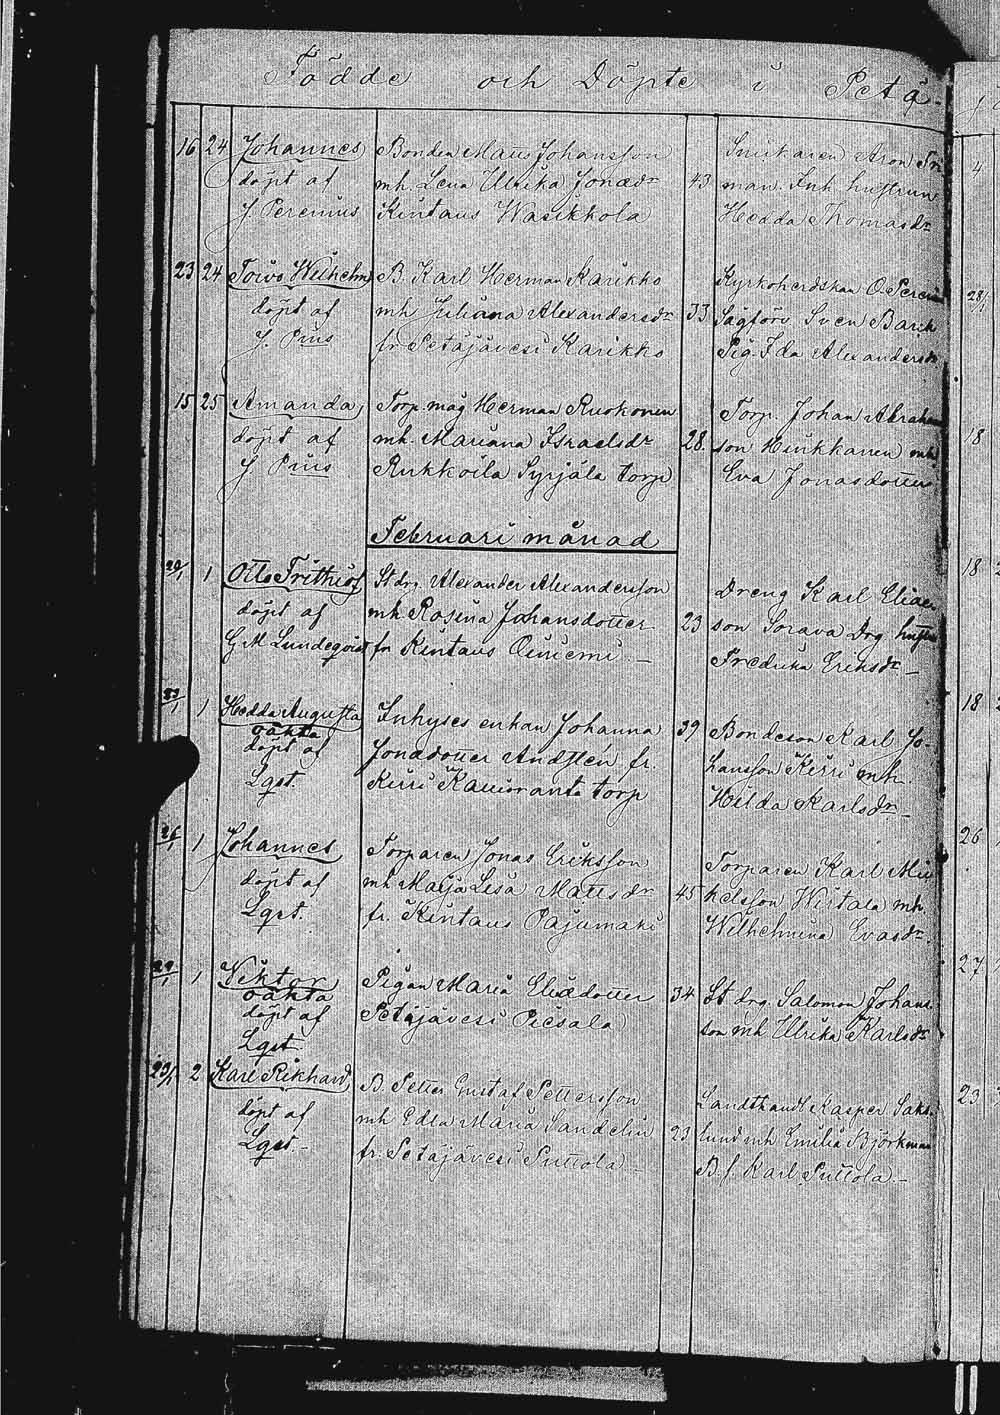 Födde och Döpte i Petä-
16 24 Johannes Bonden Matts Johansson Aron
döpt af mh. Lena Ulrika Jonaedr 43 man. Inh. hustrun
J Perenius Kintaus Wasikkola Hedda Thomasdr
23 24 Toivo Wilhelm B. Karl Herman Karikko Kyrkoherdskan O Pereni
döpt af mh Juliana Alexandersdr 33 Sven
J. Prius fr Petäjävesi Karikko Pig. Ida Alexandersdr
15 25 Amanda, Torp. måg Herman Ruokonen Torp. Johan Abraham
döpt af mh. Mariana Israelsdr 28. son Hiukkanen mh
J Prius Rukkoila Syrjälä torp Eva Jonasdotter
Februari månad
20/1 1 Otto Frithiof St drg Alexander Alexandersson Dreng Karl Eliae
döpt af mh. Rosina Johansdotter 23 son Sorava Drg hustru
G M Lundeqvist fr Kintaus Oiniemi — Fredrika Eriksdr —
23/1 1 Hedda Augusta Inhyses enkan Johanna 39 Bondeson Karl Jo-
oäkta
döpt af Jonaedotter fr. hansson Kirri mh
Lqst. Kirri torp Hilda Karlsdr —
26/1 1 Johannes Torparen Jonas Eriksson Torparen Karl Mi
döpt af mh Maija Lisa Mattsdr 45 kelsson Wiitala mh
Lqst. fr. Kintaus Pajumäki Wilhelmina Evasdr.
22/1 1 Viktor Pigan Maria Eliædotter 34 St drg. Salomon Johans
oäkta
döpt af Petäjävesi Piesala son mh Ulrika Karlsdr
Lqst.
23/1 2 Karl Rikhard B Petter Gustaf Pettersson Landthandl Kasper Saks
döpt af mh Edla Maria Sandelin 23 lund mh Emilia Björkman
Lqst. — fr. Petäjävesi Puttola — B. f. Karl Puttola. —
4
28/1
18
18 2
18
26
27
23